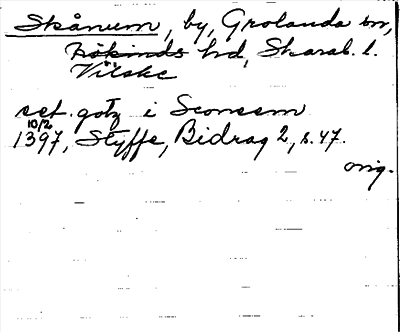 Skånum, by, Grolanda sn,
Frökinds hd, Skarab. l.
Vilske
set. gotz i Sconem
10/2
1397, Styffe, Bidrag 2, s. 47.
orig.